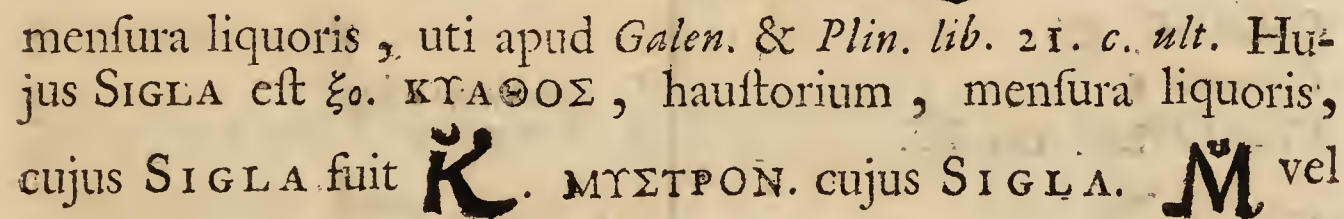 menſura liquoris, uti apud Galen. & Plin. lib. 21. c. ult. Hu-
jus SIGLA eſt ξο. ΚΥΑΘΟΣ, hauſtorium, menſura liquoris,
cujus SIGLA fuit K̆. ΜΥΣΤΡΟΝ. cujus SIGLA. M̆ vel